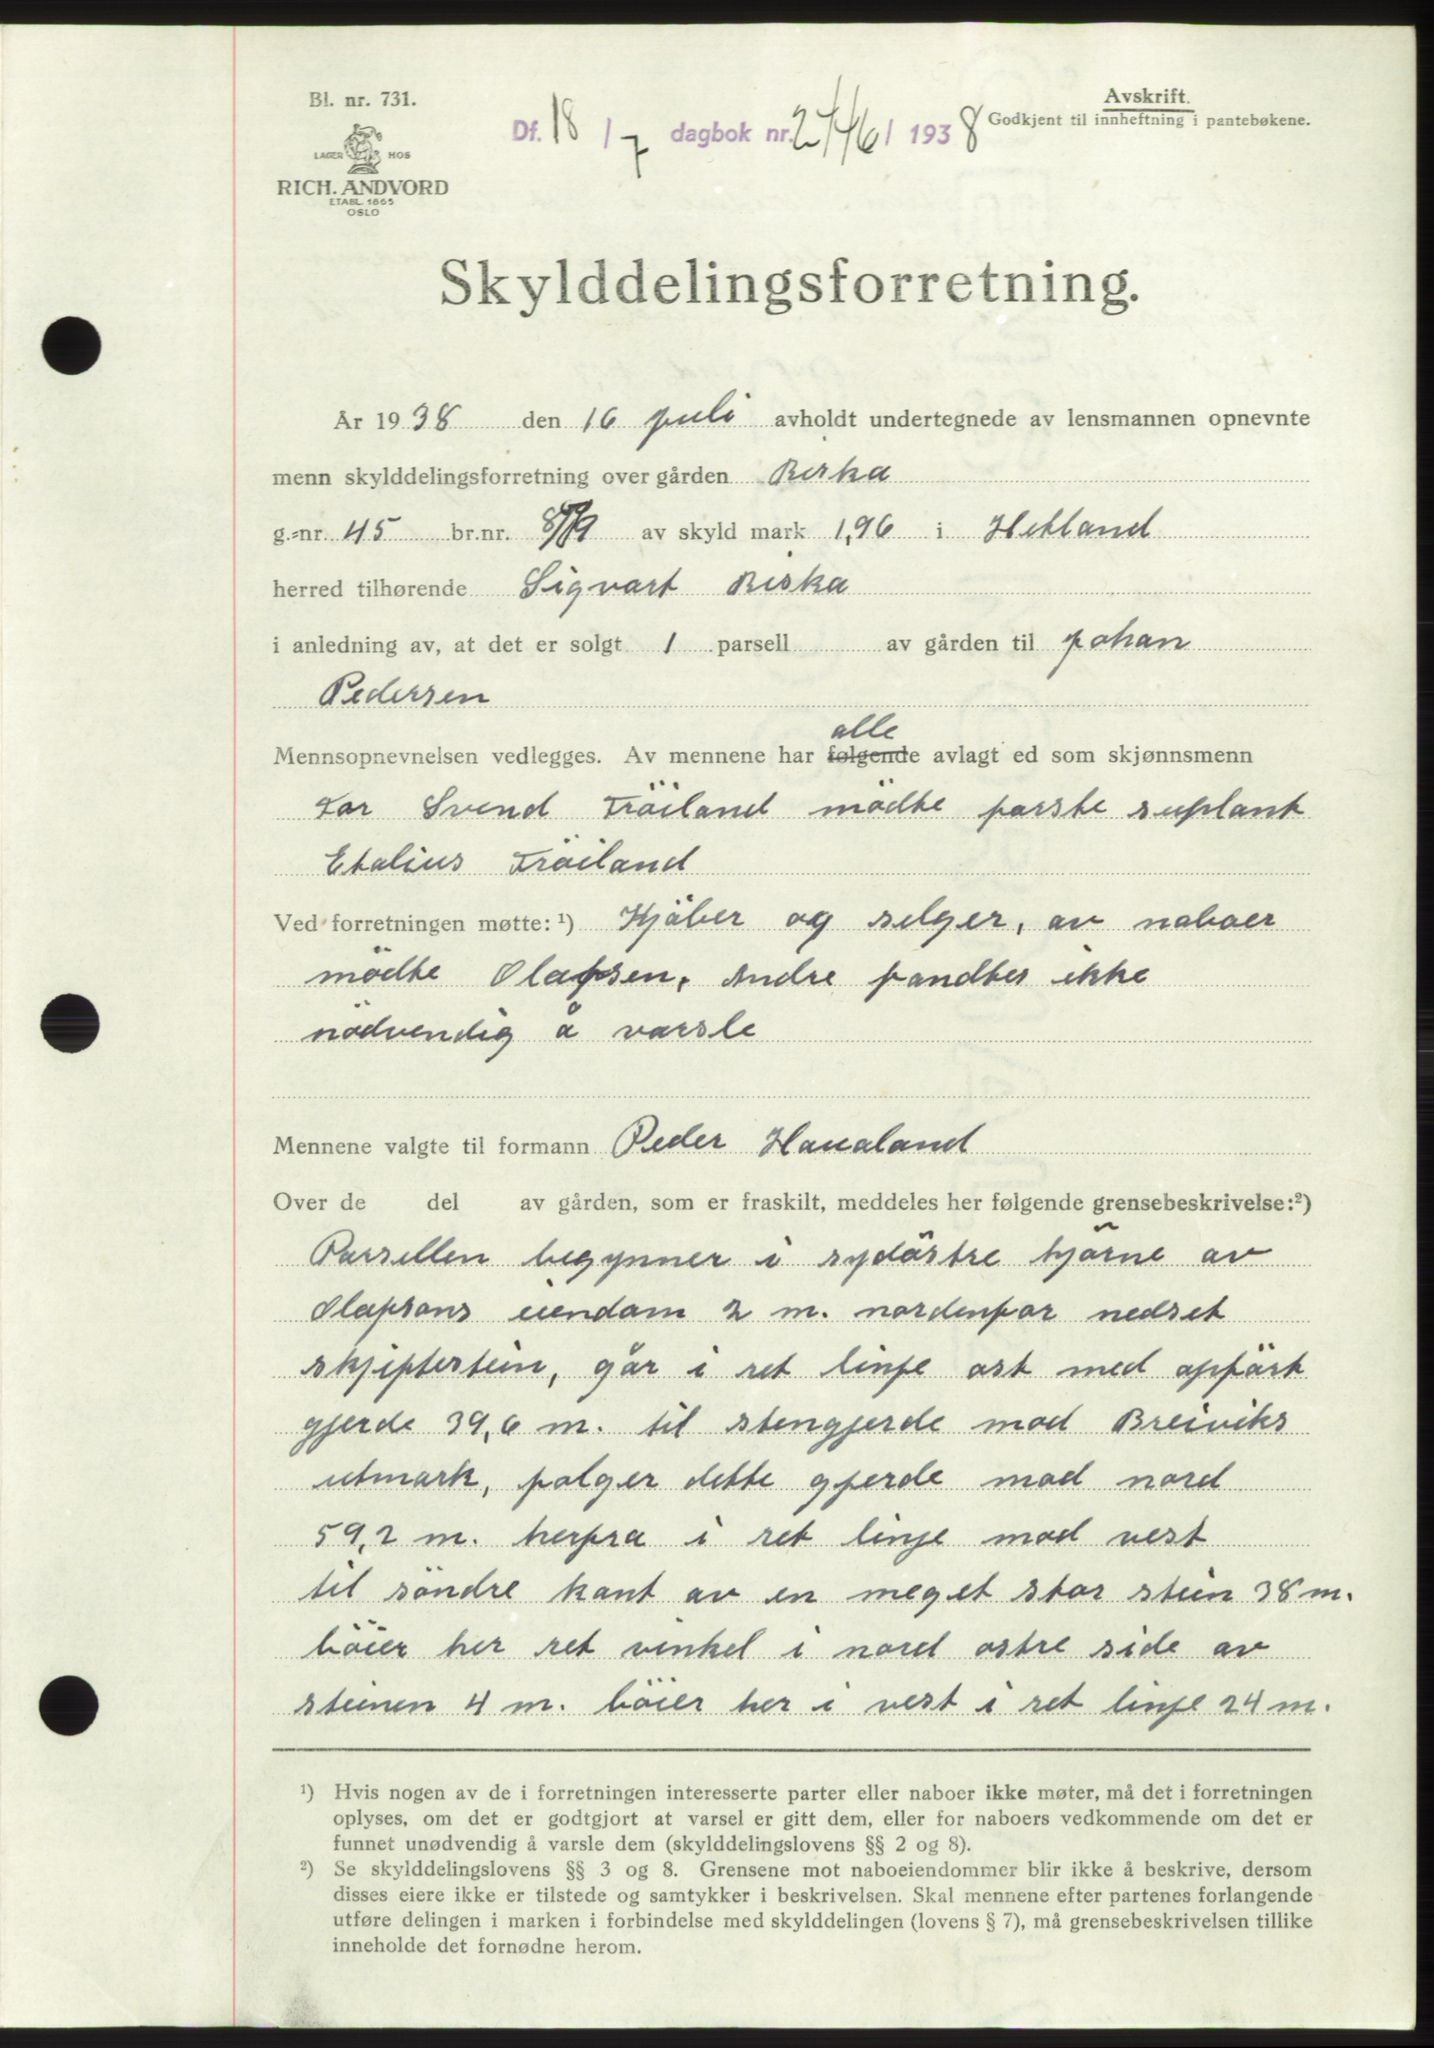 Bl. nr. 731.
Avskrift.
Godkjent til innheftning i pantebøkene.
Df. 18 / 7 dagbok nr. / 1938
LAGER HOS
RICH. ANDVORD
ETABL. 1865
OSLO
Skylddelingsforretning.
År 1938 den 16 juli avholdt undertegnede av lensmannen opnevnte
menn skylddelingsforretning over gården Riska
g.-nr. 45 br.nr. av skyld mark 1,96 i Hetland
herred tilhørende Sigvart Riska
i anledning av, at det er solgt 1 parsell av gården til Johan
Pedersen
alle
Mennsopnevnelsen vedlegges. Av mennene har følgende avlagt ed som skjønnsmenn
For Svend Fröiland mödte förste suplant
Etalius Fröiland
Ved forretningen møtte: ¹) Kjöber og selger, av naboer
mödte Olafsen. Andre fandtes ikke
nödvendig å varsle
Mennene valgte til formann Peder Haualand
Over de del av gården, som er fraskilt, meddeles her følgende grensebeskrivelse: ²)
Parsellen begynner i sydöstre hjörne av
Olafsens eiendom 2 m. nordenfor nedset
skjiftestein, går i ret linje ost med opfört
gjerde 39,6 m. til stengjerde mod Breiviks
utmark, folger dette gjerde mod nord
59,2 m. herfra i ret linje mod vest
til söndre kant av en meget stor stein 38 m.
böier her ret vinkel i nord ostre side av
steinen 4 m. böier her i vest i ret linje 24 m.
¹) Hvis nogen av de i forretningen interesserte parter eller naboer ikke møter, må det i forretningen
oplyses, om det er godtgjort at varsel er gitt dem, eller for naboers vedkommende om det er
funnet unødvendig å varsle dem (skylddelingslovens §§ 2 og 8).
²) Se skylddelingslovens §§ 3 og 8. Grensene mot naboeiendommer blir ikke å beskrive, dersom
disses eiere ikke er tilstede og samtykker i beskrivelsen. Skal mennene efter partenes forlangende
utføre delingen i marken i forbindelse med skylddelingen (lovens § 7), må grensebeskrivelsen tillike
inneholde det fornødne herom.